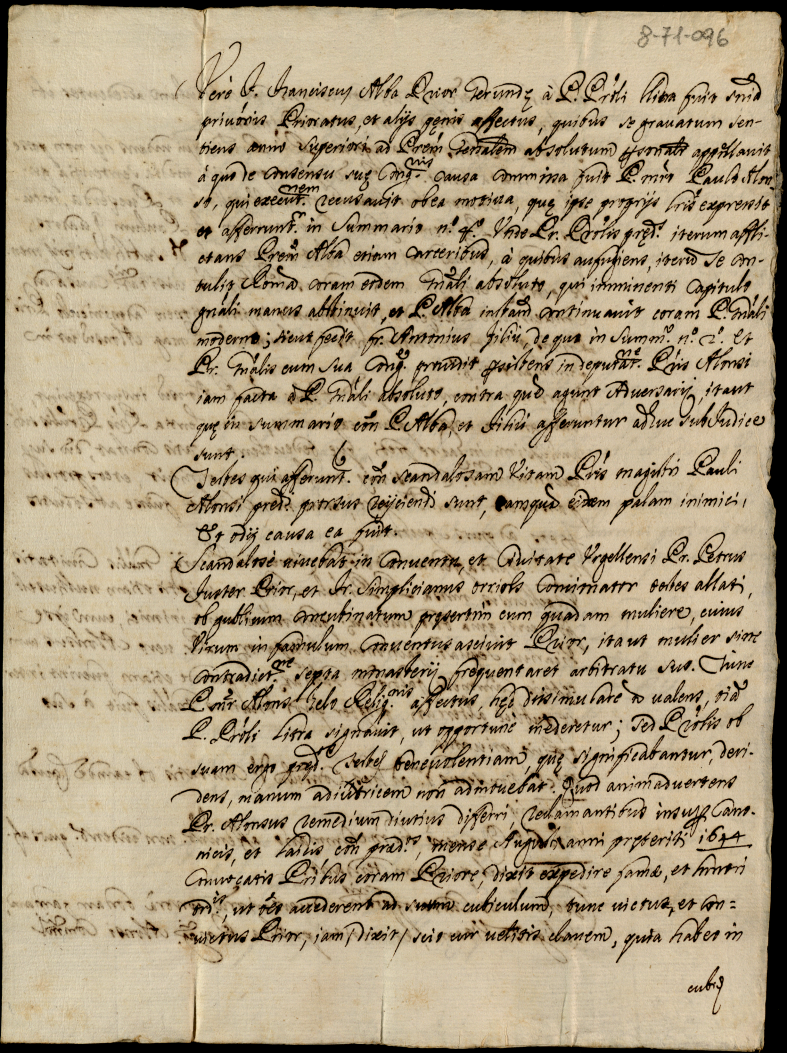 8-71-096
Verè F. Franciscus Alba Prior Gerundę à P. Prôli llība fuit sūid
privâvis Prioratus, et alijs pęnis affectus, quibus se gravatum sen-
tiens anno superiori ad Prem̄ Gñalem absolutum appellavit
à quo de consensu suę Cong.nis causa commissa fuit P. mrô Paulo Alon-
so, qui recusavit ob ea motiva, quę ipse proprijs lrīs expressit
et afferunt.r in Summario n.º 4.º Unde Pr. Prôlis pręd.s iterum affli-
ctans Prem̄ Alba etiam carceribus, à quibus aufugiens, iterū se con-
tulit Romā coram eodem Gñali absoluto, qui imminenti Capitulo
gñali manus abstinuit, et P. Alba instañ continuavit coram P. Gñali
moderno; sicut fecit fr. Antonius Filiù, de quo in Summ.º n.º 2.º. Et
Pr. Gñalis cum sua Cong.e providit in deputat.ne P.ris Alonsi
iam facta à P. Gñali absoluto, contra quē agunt Adversarij, itaut
quę in summario cōn P. Alba, et Filiù afferuntur adhuc sub Judice
sunt.
Testes qui afferunt.r cōn scandalosam vitam P.ris magistri Pauli
Alonsi pręd.i prorsus reijciendi sunt, tamquā eidem palam inimici,
Et odij causa ea fuit.
Scandalosè vivebat in Conventu, et Civitate Urgellensi Pr. Petrus
Juster Prior, et Fr. Simplicianus orriols Concionator testes allati,
ob publicum concubinatum pręsertim cum quadam muliere, cuius
Virum in famulum Conventus ascivit Prior, itaut mulier sine
contradict.ne septa monasterij frequentaret arbitratu suo. Tunc
P. mr̄ Alonsus Zelo Relig.onis affectus, hęc dissimulare ñ valens, ...
P. Prôli littra signavit, ut opportunè mederetur; Sed Prôlis ob
suam ergo pręd.s testes benevolentiam, quę significabantur, deri-
dens, manum adiutricem non admovebat. Quod animadvertens
Pr. Alonsus remedium diutius differri, reclamantibus insup Cano-
nicis, et laicis cōn pręd.os, mense Augusti anni pręteriti 1644
convocatis Pribus coram Priore, dixit expedire famæ, et honori
..., ut ōes accederent ad suum cubiculum, tunc victus, et con=
victus Prior, iam /dixit/ scio cur velitis clavem, quia habeo in
cubi